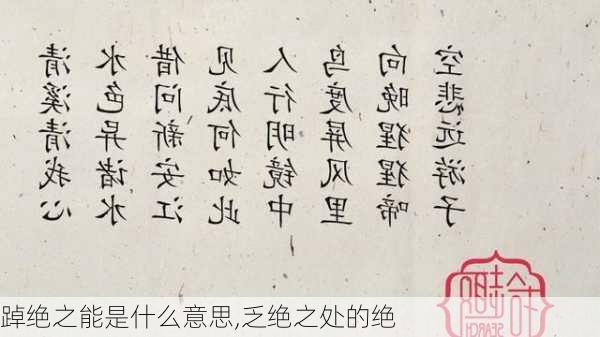 清溪清我心
水色异诸水
借问新安江
见底何如此
人行明镜中
鸟度屏风里
向晚猩猩啼
空悲远游子
SEARCH
踔绝之能是什么意思,乏绝之处的绝